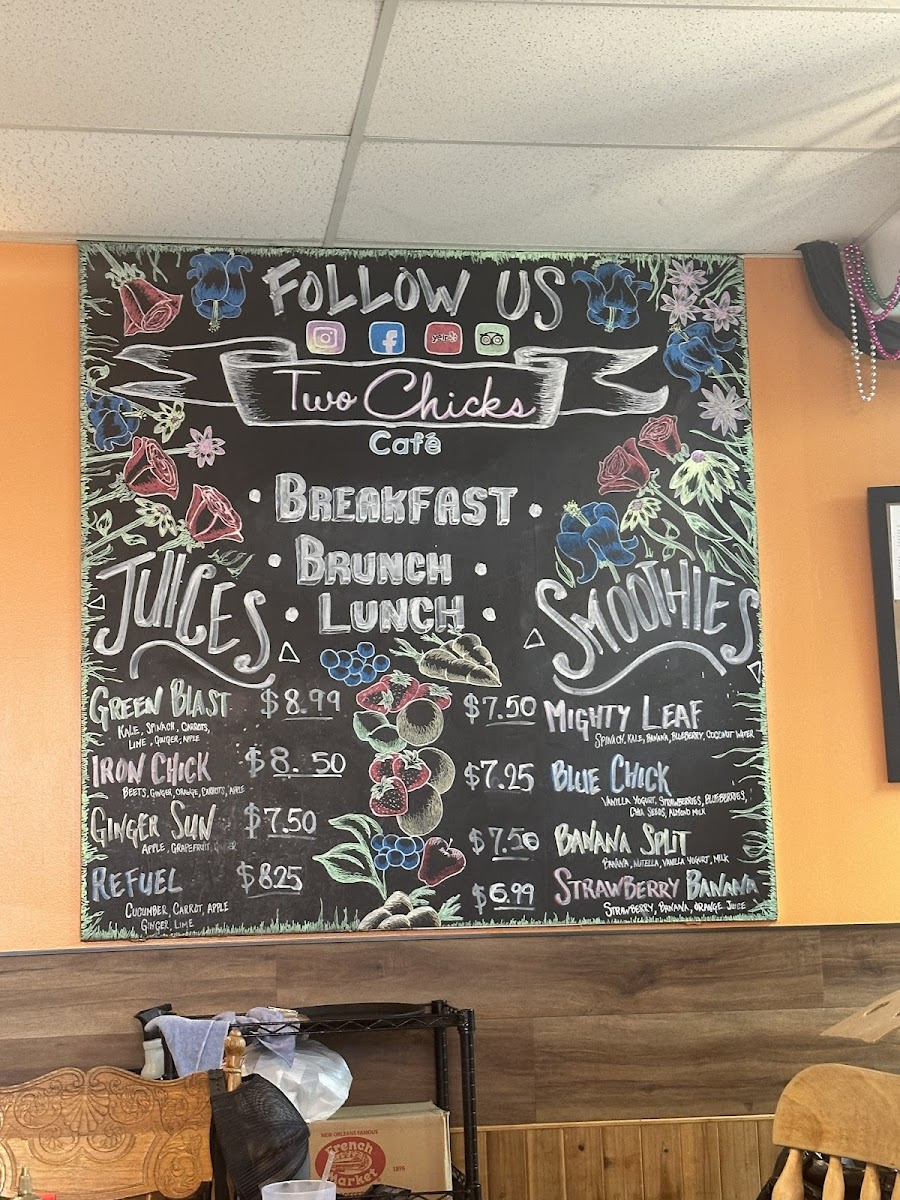 FOLLOW US
yelp
Two Chicks
Café
BREAKFAST
BRUNCH
LUNCH
JUICES
GREEN BLAST $8.99
KALE, SPINACH, CARROTS,
LIME, GINGER, APPLE
IRON CHICK $8.50
BEETS, GINGER, ORANGE, CARROTS, APPLE
GINGER SUN $7.50
APPLE, GRAPEFRUIT, GINGER
REFUEL $8.25
CUCUMBER, CARROT, APPLE
GINGER, LIME
SMOOTHIES
$7.50 MIGHTY LEAF
SPINACH, KALE, BANANA, BLUEBERRY, COCONUT WATER
$7.25 BLUE CHICK
VANILLA YOGURT, STRAWBERRIES, BLUEBERRIES,
CHIA SEEDS, ALMOND MILK
$7.50 BANANA SPLIT
BANANA, NUTELLA, VANILLA YOGURT, MILK
$6.99 STRAWBERRY BANANA
STRAWBERRY, BANANA, ORANGE JUICE
NEW ORLEANS FAMOUS
French
Market